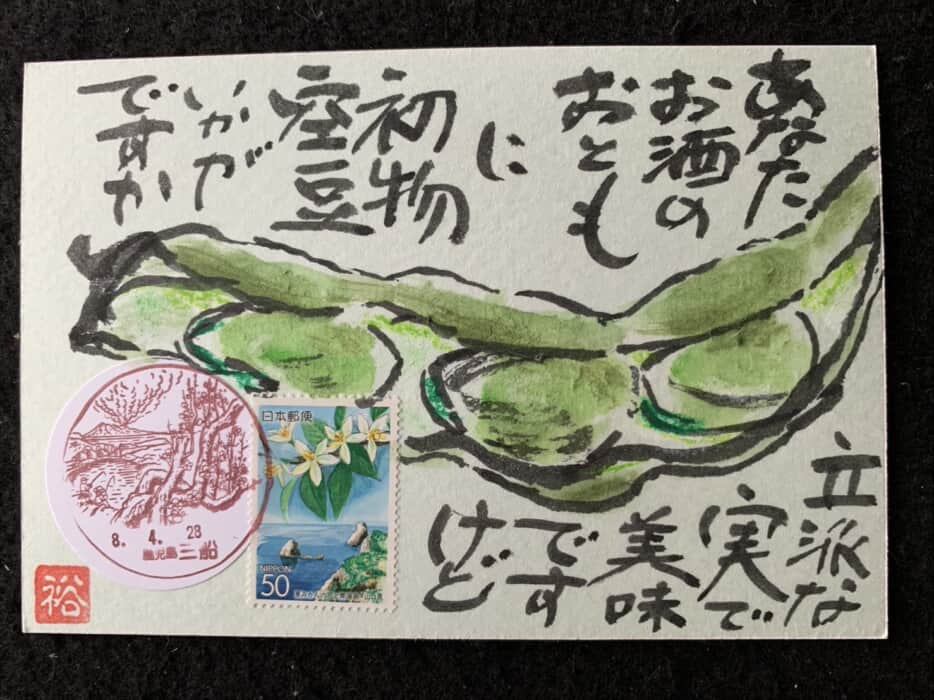 あなた
お酒の
おとも
に
初物
空豆
いかが
ですか
立派な
実で
美味
です
けど
日本郵便
NIPPON
50
8. 4. 28
鹿児島 三船
裕